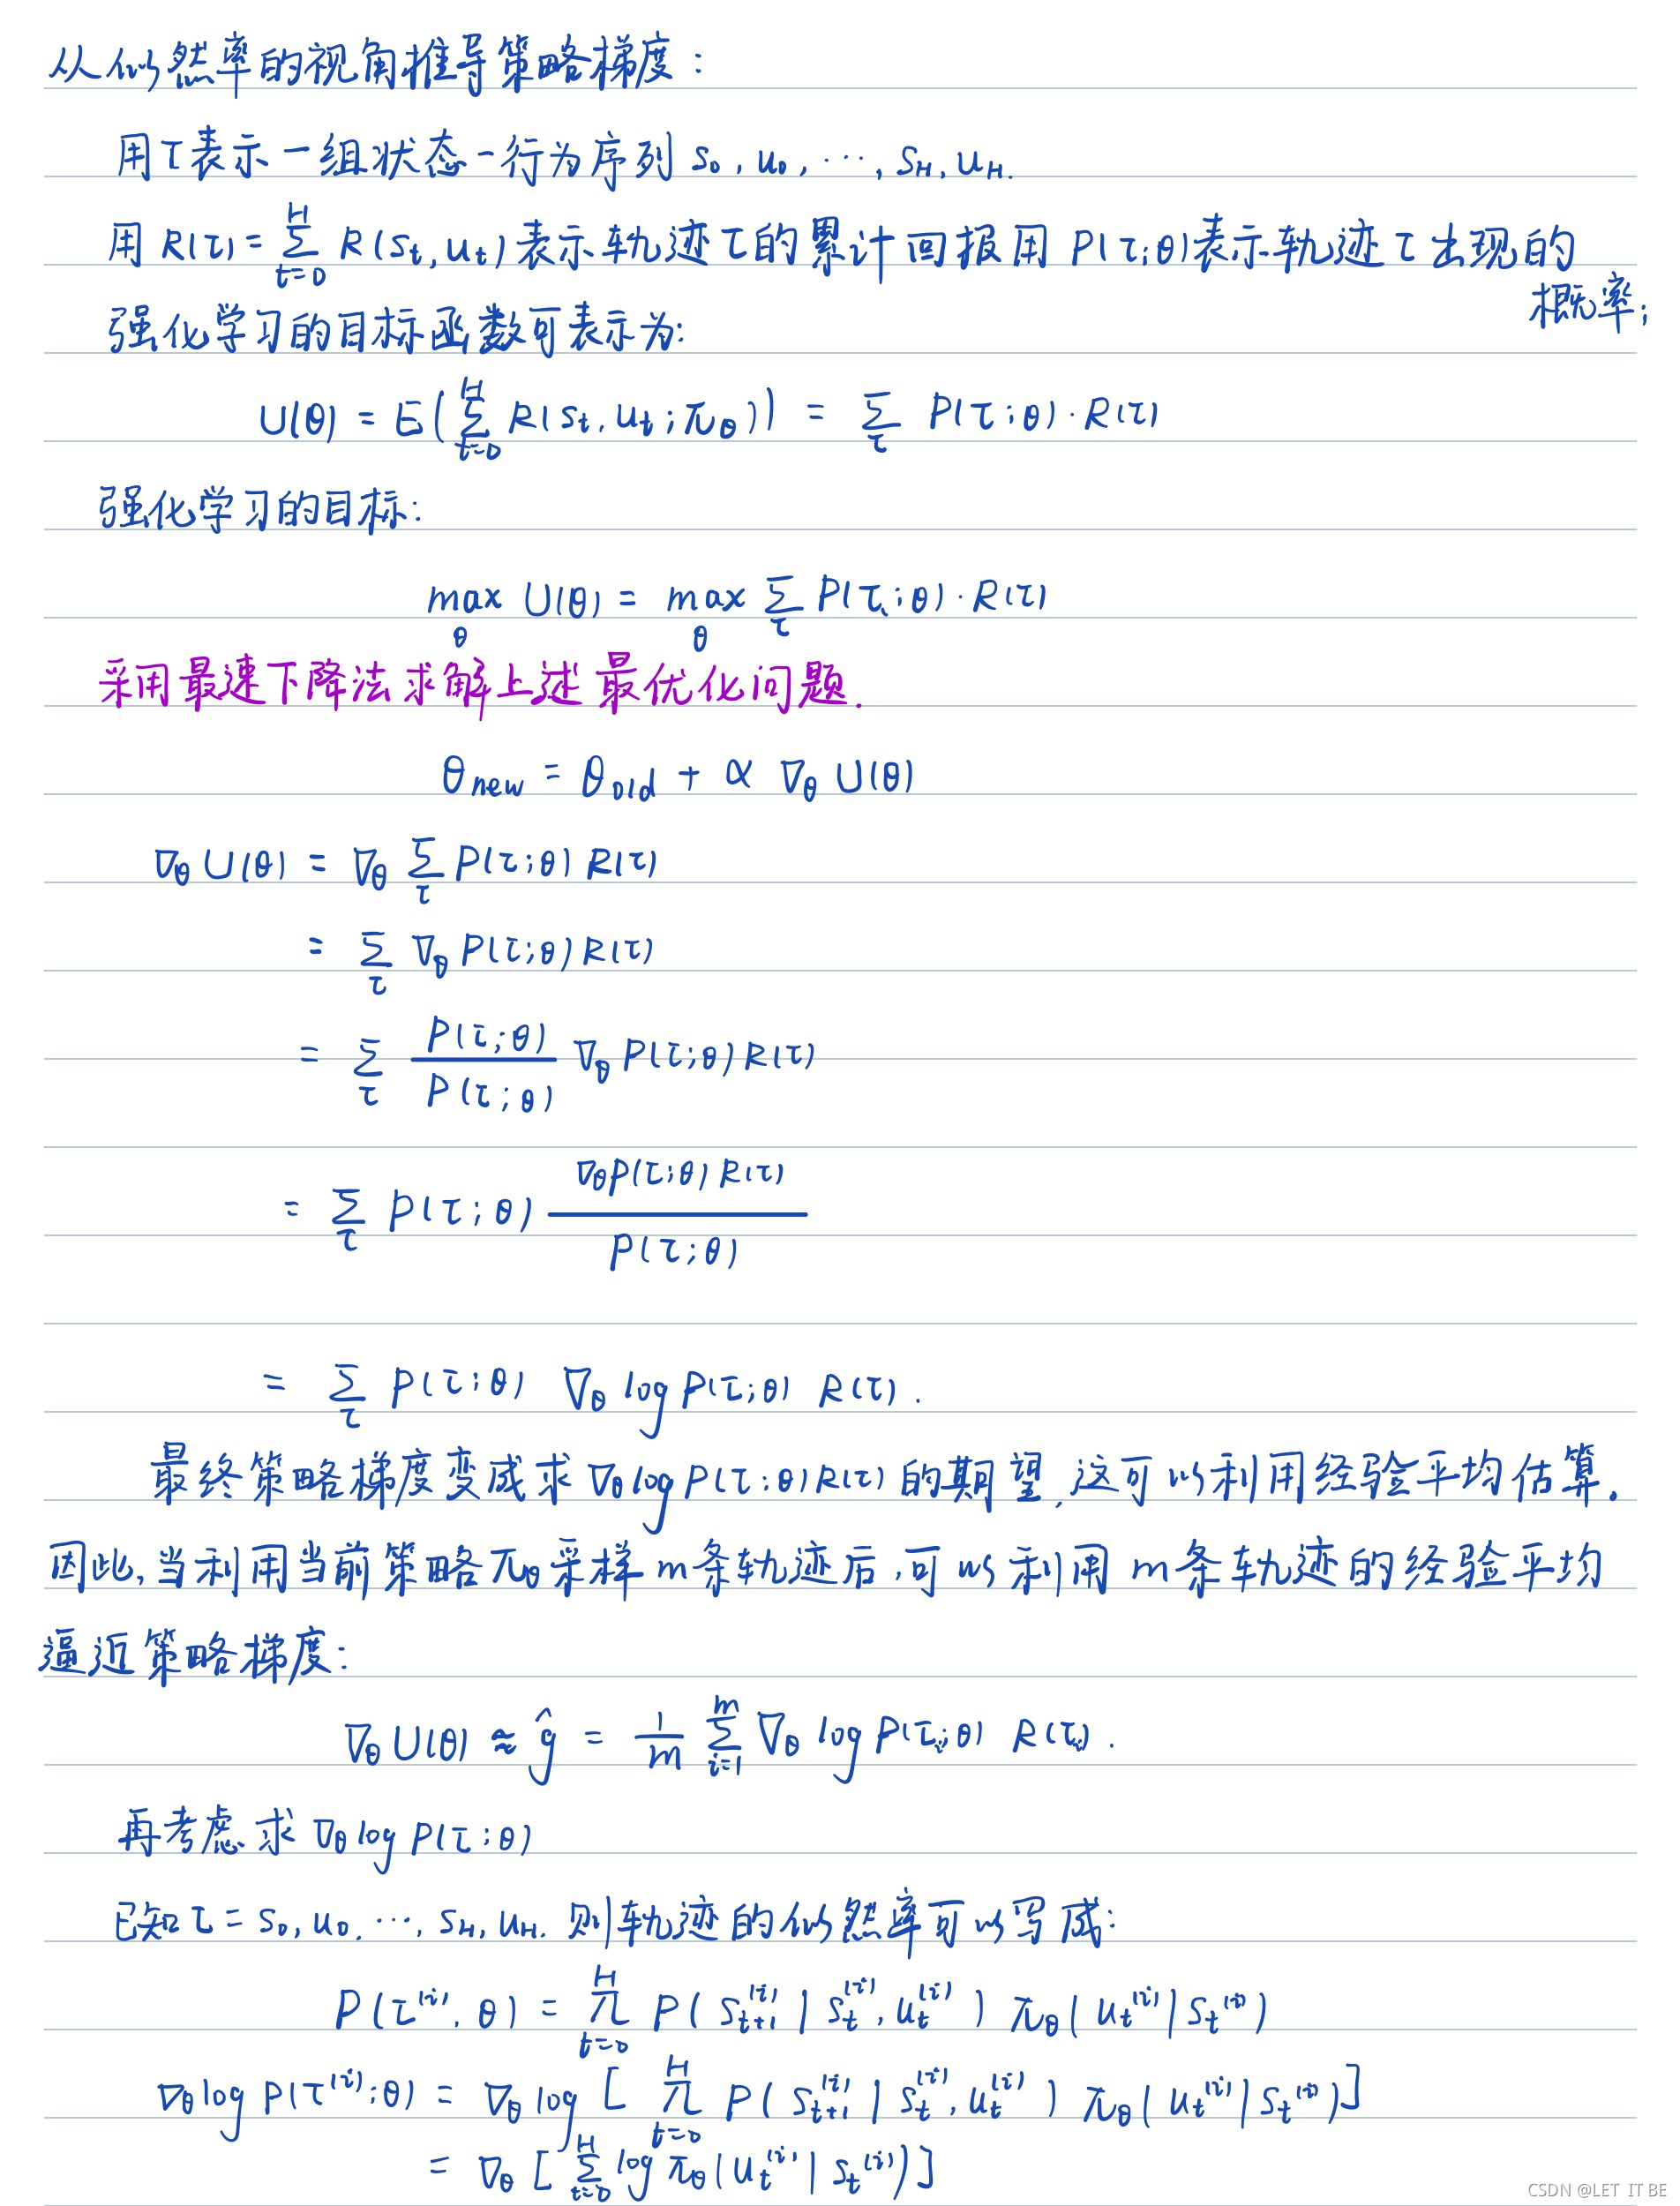 从似然率的视角推导策略梯度：
用τ表示一组状态-行为序列 s₀, u₀, ⋯, s_H, u_H.
用 R(τ) = ∑_{t=0}^{H} R(s_t, u_t) 表示轨迹τ的累计回报用 P(τ;θ)表示轨迹τ出现的
概率;
强化学习的目标函数可表示为:
U(θ) = E(∑_{t=0}^{H} R(s_t, u_t; π_θ)) = ∑_τ P(τ;θ)·R(τ)
强化学习的目标:
max_θ U(θ) = max_θ ∑_τ P(τ;θ)·R(τ)
采用最速下降法求解上述最优化问题.
θ_new = θ_old + α ∇_θ U(θ)
∇_θ U(θ) = ∇_θ ∑_τ P(τ;θ) R(τ)
= ∑_τ ∇_θ P(τ;θ) R(τ)
= ∑_τ \frac{P(τ;θ)}{P(τ;θ)} ∇_θ P(τ;θ) R(τ)
= ∑_τ P(τ;θ) \frac{∇_θ P(τ;θ) R(τ)}{P(τ;θ)}
= ∑_τ P(τ;θ) ∇_θ log P(τ;θ) R(τ).
最终策略梯度变成求 ∇_θ log P(τ;θ) R(τ) 的期望,这可以利用经验平均估算.
因此,当利用当前策略 π_θ 采样 m条轨迹后,可以利用 m条轨迹的经验平均
逼近策略梯度:
∇_θ U(θ) ≈ ĝ = \frac{1}{m} ∑_{i=1}^{m} ∇_θ log P(τ_i;θ) R(τ_i).
再考虑求 ∇_θ log P(τ;θ)
已知 τ = s₀, u₀. ⋯, s_H, u_H. 则轨迹的似然率可以写成:
P(τ^{(i)}. θ) = ∏_{t=0}^{H} P(s_{t+1}^{(i)} | s_t^{(i)}, u_t^{(i)}) π_θ(u_t^{(i)} | s_t^{(i)})
∇_θ log P(τ^{(i)};θ) = ∇_θ log [∏_{t=0}^{H} P(s_{t+1}^{(i)} | s_t^{(i)}, u_t^{(i)}) π_θ(u_t^{(i)} | s_t^{(i)})]
= ∇_θ [∑_{t=0}^{H} log π_θ(u_t^{(i)} | s_t^{(i)})]
CSDN @LET IT BE